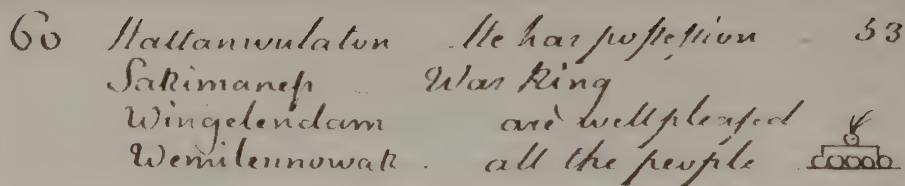 60 Hattanwulaton He has possession - 53
Sakimanep Was King
Wingelendam are well pleased
Wemilennowak . all the people